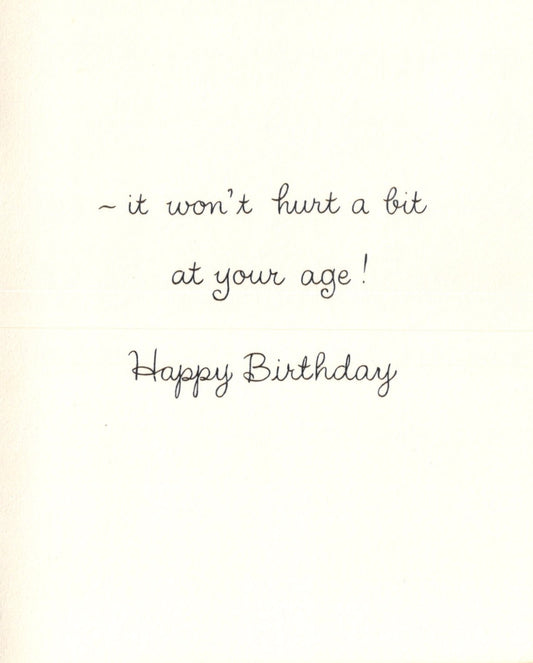 ~ it won't hurt a bit
at your age!
Happy Birthday